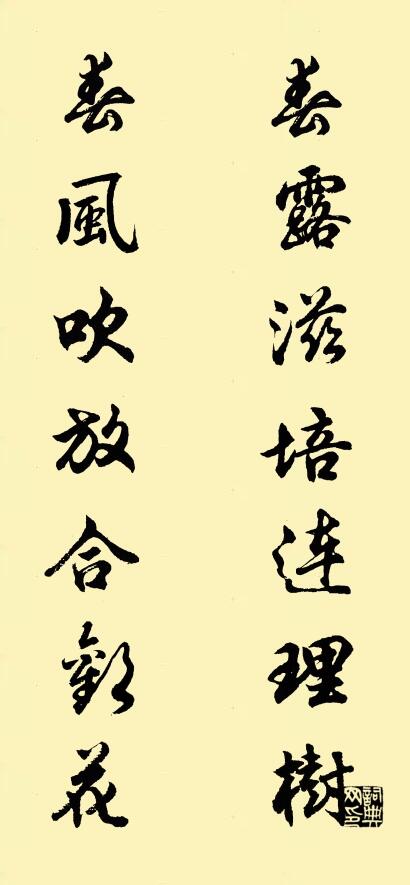 春露滋培連理樹
春風吹放合歡花
詞典網印